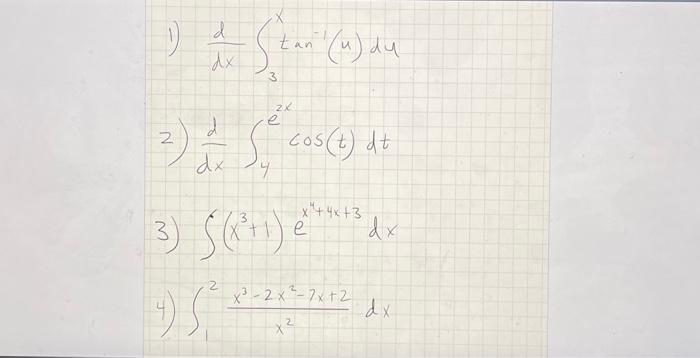 1) d/dx ∫₃ˣ tan⁻¹(u) du
2) d/dx ∫₄^(e^(2x)) cos(t) dt
3) ∫(x³+1) e^(x⁴+4x+3) dx
4) ∫₁² (x³-2x²-7x+2)/x² dx